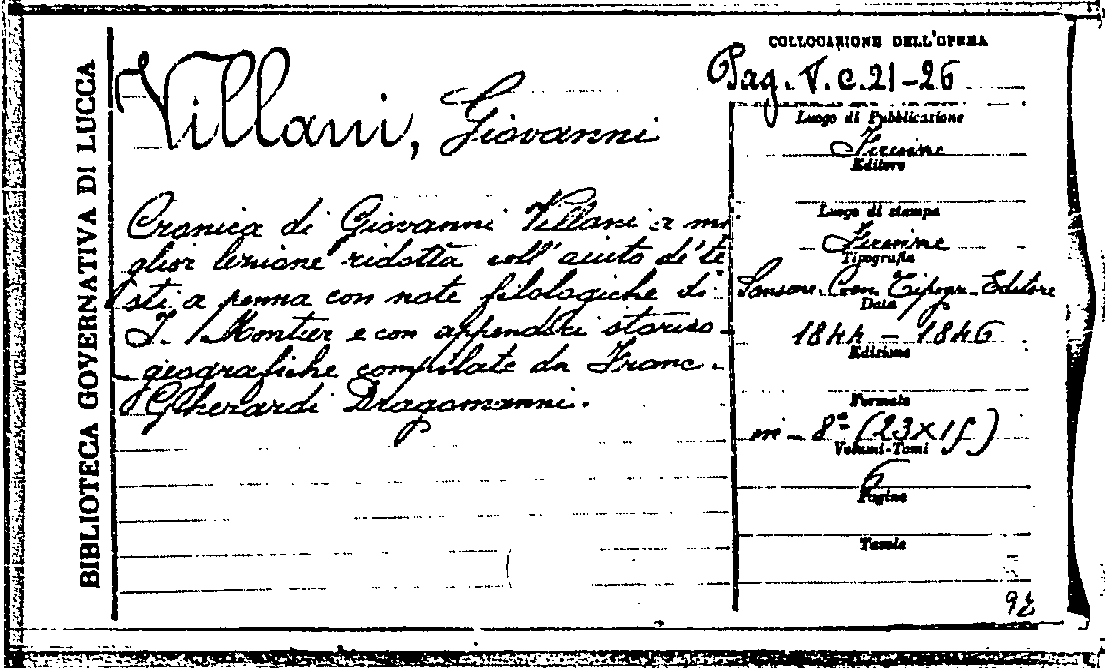 BIBLIOTECA GOVERNATIVA DI LUCCA
Villani, Giovanni
Cronica di Giovanni Villani a mi
glior lezione ridotta coll'aiuto de' te
sti a penna con note filologiche di
I. Montier e con appendici storico-
geografiche compilate da Franc.
Gherardi Dragomanni.
COLLOCAZIONE DELL'OPERA
Pag. V. c. 21-26
Luogo di Pubblicazione
Firenze
Editore
Luogo di stampa
Firenze
Tipografia
Sansone Coen Tipogr. Editore
Data
1844 - 1846
Edizione
Formato
in - 8º (23x15)
Volumi-Tomi
6
Pagine
Tavole